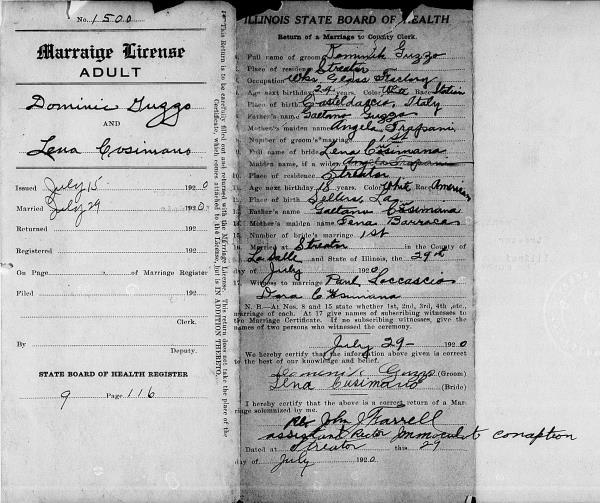 No. 1500
Marraige License
ADULT
Dominic Guzzo
AND
Lena Cosimano
Issued July 15 192 0
Married July 29 192 0
Returned 192
Registered 192
On Page of Marriage Register
Filed 192
Clerk.
By
Deputy.
STATE BOARD OF HEALTH REGISTER
9 Page 116
This Return is to be carefully filled out and returned with the Marriage License. This return does not take the place of the
Certificate, which comes attached to the License, but is IN ADDITION THERETO.
ILLINOIS STATE BOARD OF HEALTH
Return of a Marriage to County Clerk.
Full name of groom Dominik Guzzo
Place of residence Streator
Occupation Wkr Glass Factory
Age next birthday 24 years. Color Wht Race
Place of birth Casteldaccia, Italy
Father's name Gaetano Guzzo
Mother's maiden name Angela Trapani
Number of groom's marriage 1st
Full name of bride Lena Cosimana
Maiden name, if a widow Angela Trapani
Place of residence Streator
Age next birthday 18 years. Color Whit Race American
Place of birth Sellers, La
Father's name Gaetano Cosimana
Mother's maiden name Lena Barraca
Number of bride's marriage 1st
Married at Streator in the County of
La Salle and State of Illinois, the 29th
day of July 1920
Witness to marriage Paul Loccascio
Dora Cosimana
N. B.—At Nos. 8 and 15 state whether 1st, 2nd, 3rd, 4th, etc.,
marriage of each. At 17 give names of subscribing witnesses to
the Marriage Certificate. If no subscribing witnesses, give the
names of two persons who witnessed the ceremony.
July 29- 192 0
We hereby certify that the information above given is correct
to the best of our knowledge and belief.
Dominik Guzzo (Groom)
Lena Cusimano (Bride)
I hereby certify that the above is a correct return of a Mar-
riage solemnized by me.
Rev John Farrell
assistant Rector Immoculit conaption
Dated at Streator this 29
day of July 192 0